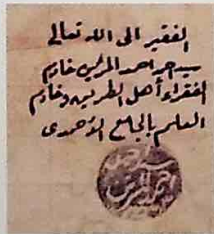 الفقير الى الله تعالى
سيد احمد المرسى خادم
الفقراء أهل الطريق وخادم
العلم بالجامع الأحمدى